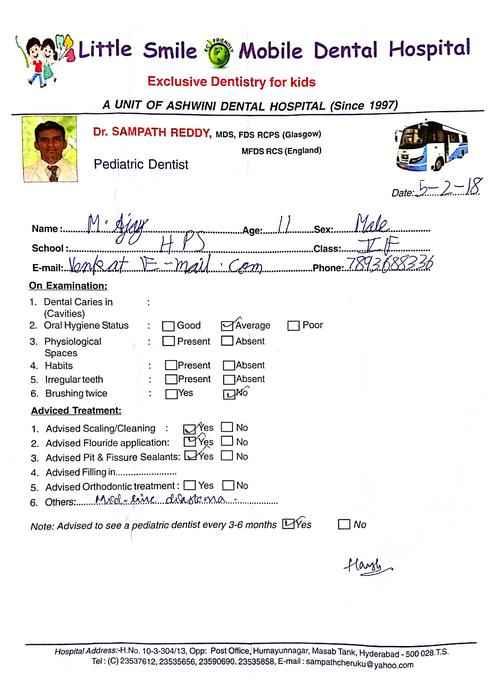 Little Smile Mobile Dental Hospital
Exclusive Dentistry for kids
A UNIT OF ASHWINI DENTAL HOSPITAL (Since 1997)
Dr. SAMPATH REDDY, MDS, FDS RCPS (Glasgow)
MFDS RCS (England)
Pediatric Dentist
Date: 5-2-18
Name: M. Ajay Age: 11 Sex: Male
School: HPS Class: V F
E-mail: Venkat E-mail.com Phone: 7893688336
On Examination:
1. Dental Caries in :
(Cavities)
2. Oral Hygiene Status : Good Average Poor
3. Physiological : Present Absent
Spaces
4. Habits : Present Absent
5. Irregular teeth : Present Absent
6. Brushing twice : Yes No
Adviced Treatment:
1. Advised Scaling/Cleaning : Yes No
2. Advised Flouride application: Yes No
3. Advised Pit & Fissure Sealants: Yes No
4. Advised Filling in
5. Advised Orthodontic treatment : Yes No
6. Others: Mid-line diastema
Note: Advised to see a pediatric dentist every 3-6 months Yes No
Hospital Address:-H.No. 10-3-304/13, Opp: Post Office, Humayunnagar, Masab Tank, Hyderabad - 500 028.T.S.
Tel : (C) 23537612, 23535656, 23590690. 23535858, E-mail : sampathcheruku@yahoo.com